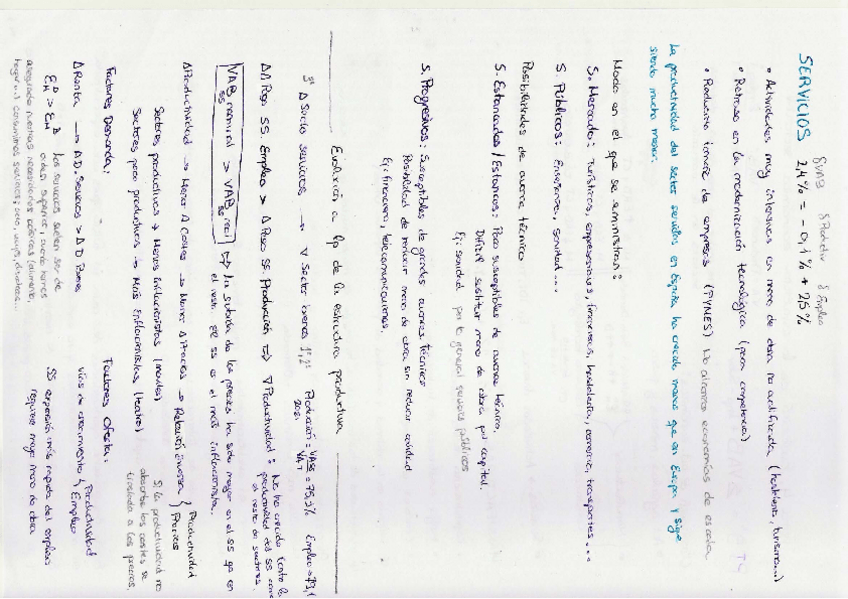 SERVICIOS
δ VAB δ Productiv δ Empleo
2,4% = -0,1% + 2,5%
• Actividades muy intensivas en mano de obra no cualificada (hostelería, turismo...)
• Retraso en la modernización tecnológica (poca competencia)
• Reducido tamaño de empresas (PYMES) No alcanza economías de escala
La productividad del sector servicios en España ha crecido menos que en Europa y sigue
siendo mucho menor.
Modo en el que se administran:
S. Mercado: Turísticos, empresariales, financieros, hostelería, comercio, transportes...
S. Públicos: Enseñanza, sanidad...
Posibilidades de avance técnico
S. Estancados/Estancos: Poco susceptibles de avance técnico.
Difícil sustituir mano de obra por capital.
Ej: sanidad por lo general servicios públicos
S. Progresivos: Susceptibles de grandes avances técnicos
Posibilidad de reducir mano de obra sin reducir calidad
Ej: financieros, telecomunicaciones.
Evolución a lp de la estructura productiva
Δ Sector servicios → ∇ Sector bienes 1º, 2º Producción = VABss / VAT = 75,2% Empleo →
Δ Prop. SS. Empleo > Δ Peso SS. Producción ⇒ ∇ Productividad: No ha crecido tanto la
productividad del SS como
el resto de sectores.
VAB ss nominal > VAB ss real ⇒ La subida de los precios ha sido mayor en el SS que en
el resto. El SS es el más inflacionista.
Δ Productividad → Menor Δ Costes → Menor Δ Precios → Relación inversa } Productividad
Precios
Sectores productivos → Menos inflacionistas (móviles)
Sectores poco productivos → Más inflacionistas (teatro)
Si la productividad no
absorbe los costes se
traslada a los precios.
Factores Demanda:
Δ Renta → Δ D. Servicios > Δ D Bienes
los servicios suelen ser de
orden superior, cuando hemos
asegurado nuestras necesidades básicas (alimento,
hogar...) consumimos servicios: ocio, viajes,
Factores Oferta:
Vías de crecimiento } Productividad
Empleo
SS expansión más rápida del empleo
requiere mayor mano de obra